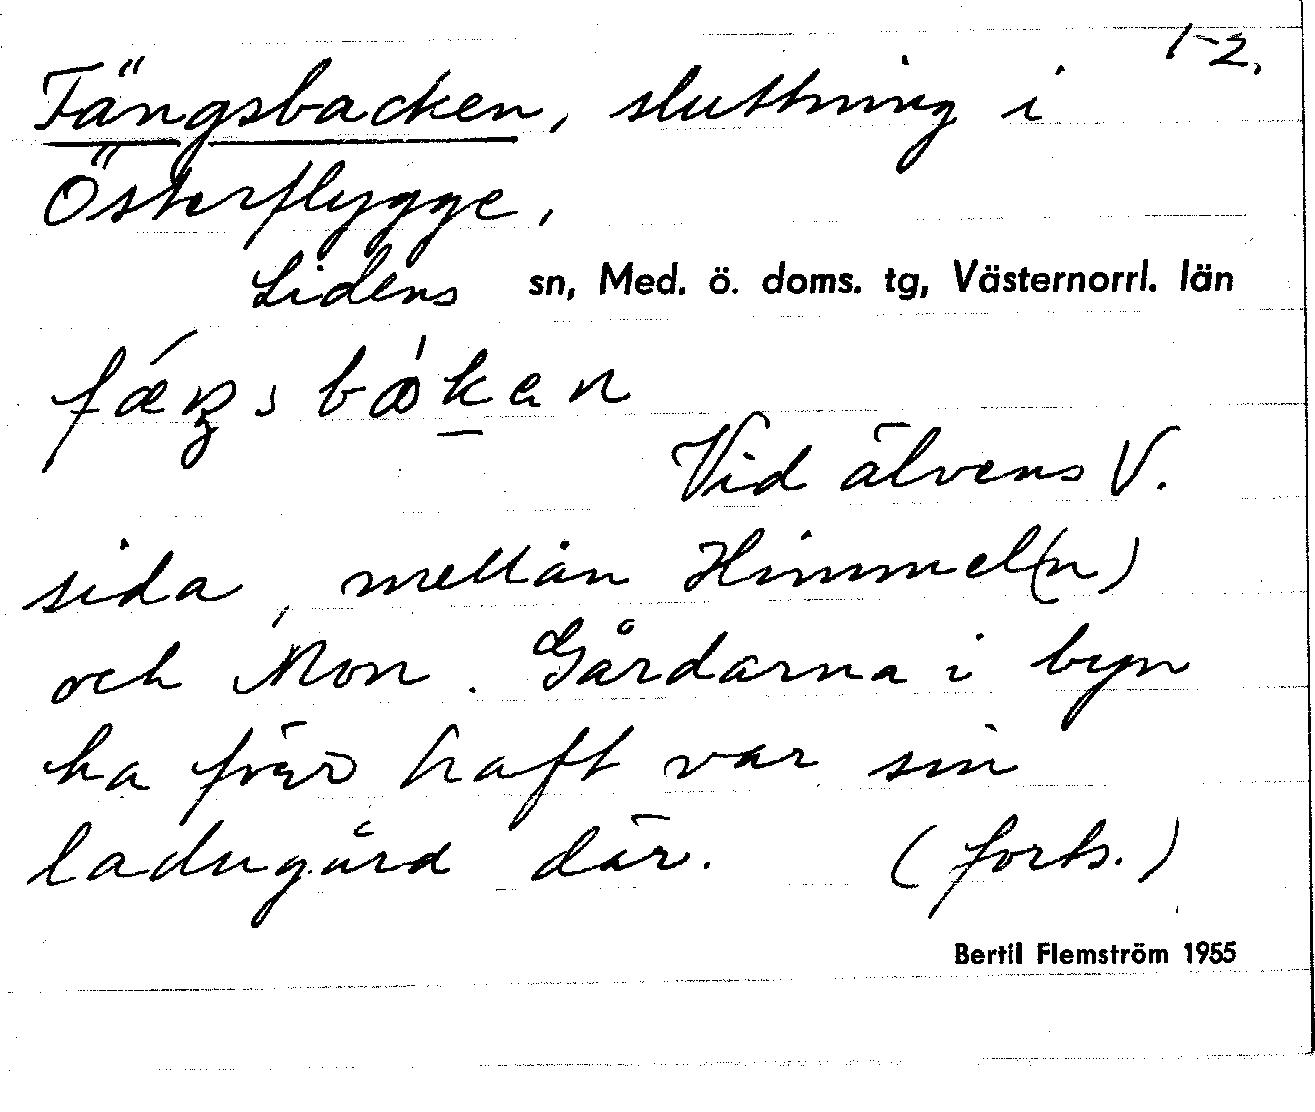 1-2.
Fängsbacken, sluttning i
Österflygge,
Lidens sn, Med. ö. doms. tg, Västernorrl. län
Vid älvens V.
sida, mellan Himmel(n)
och Mon. Gårdarna i byn
ha förr haft var sin
ladugård där. (forts.)
Bertil Flemström 1955